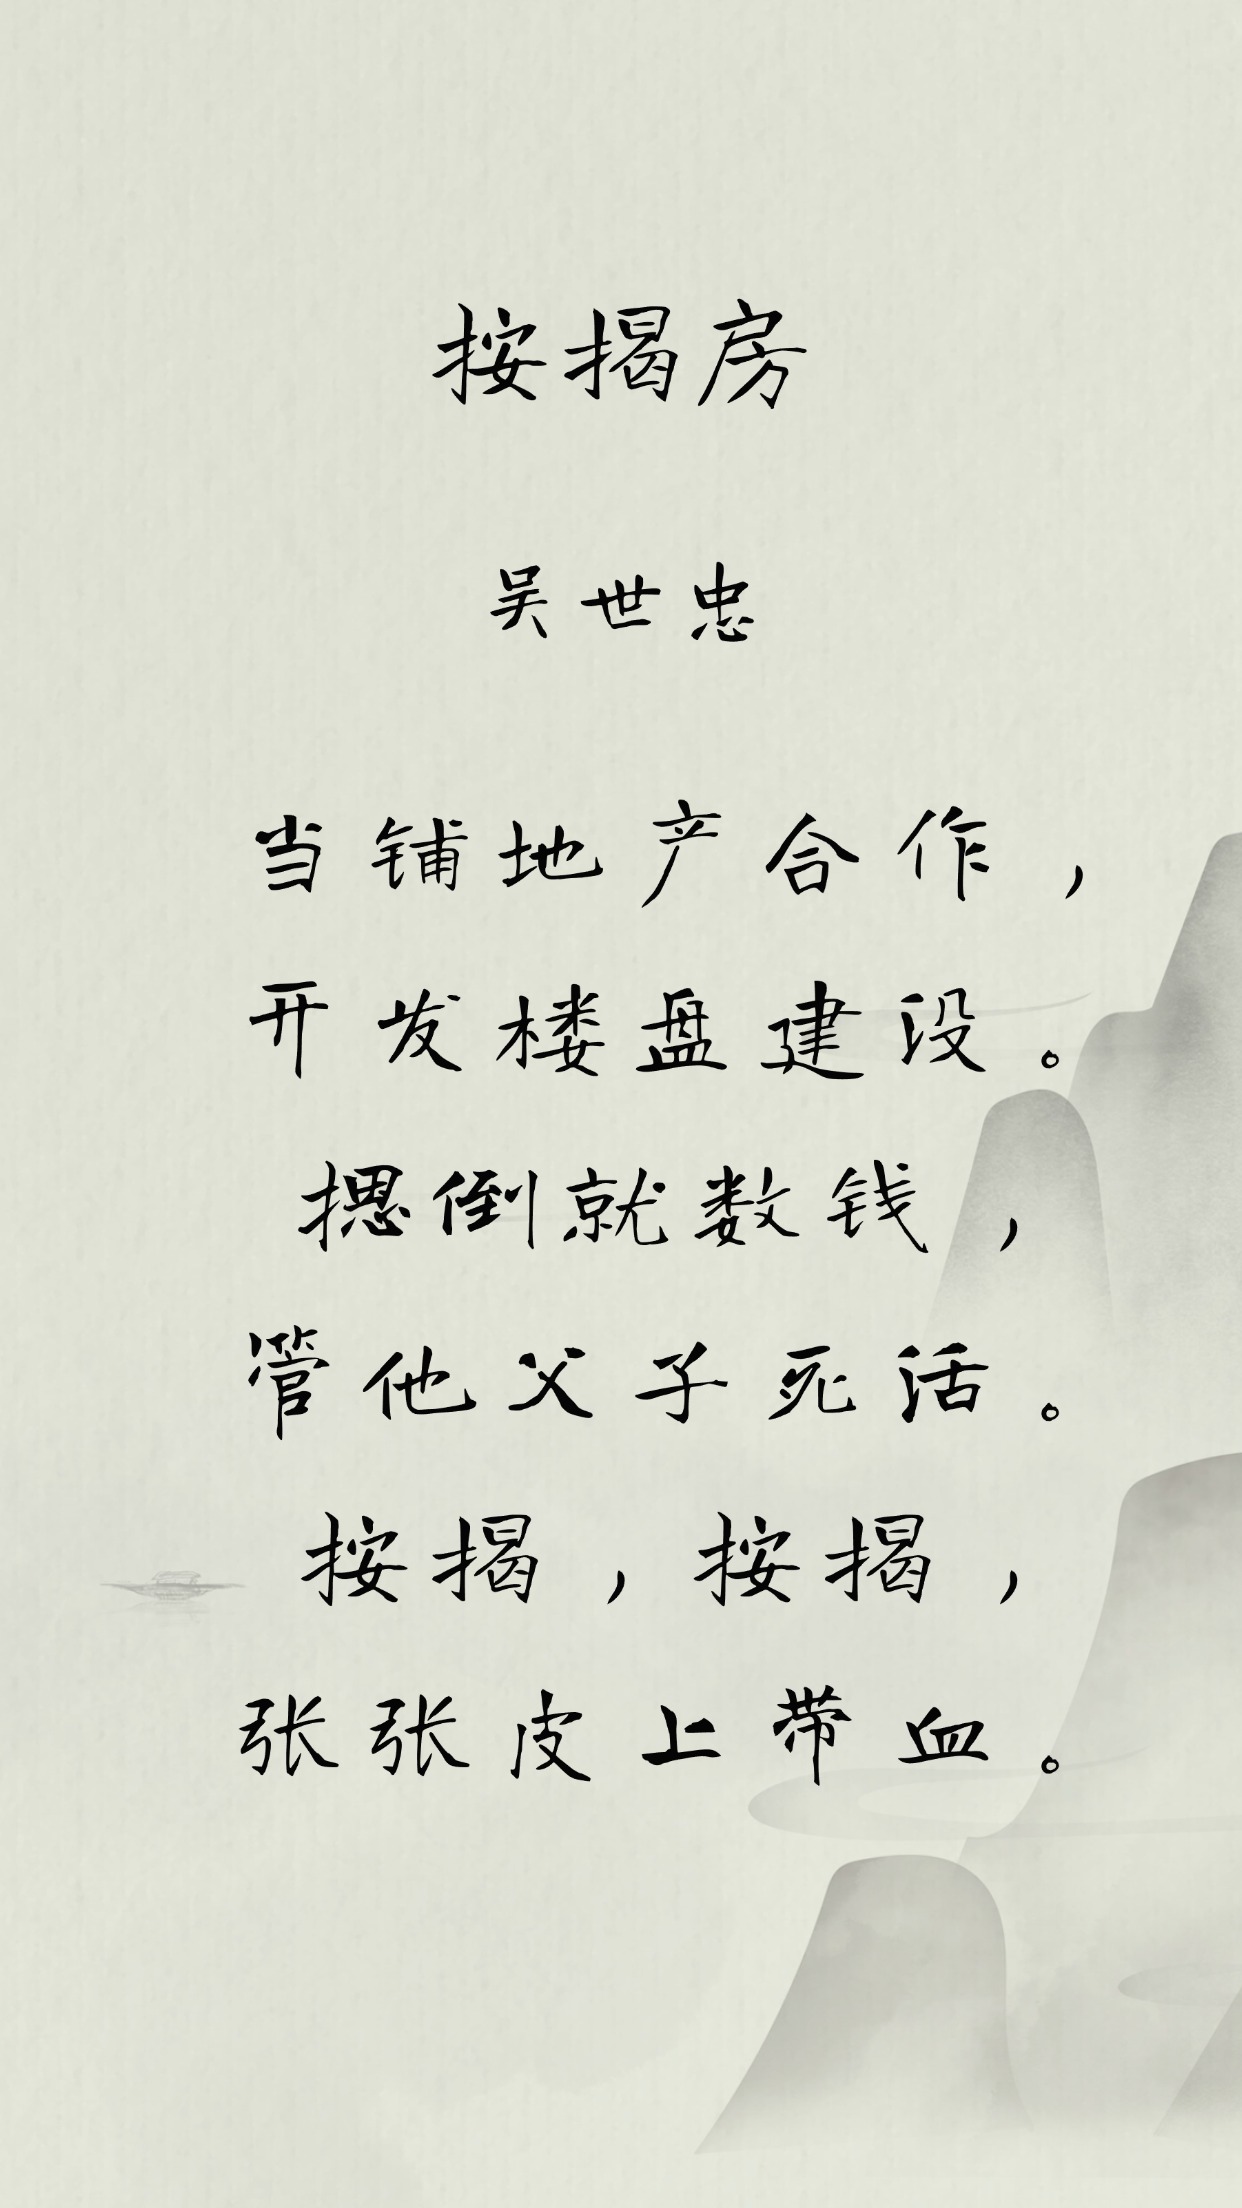 按揭房
吴世忠
当铺地产合作，
开发楼盘建设。
摁倒就数钱，
管他父子死活。
按揭，按揭，
张张皮上带血。